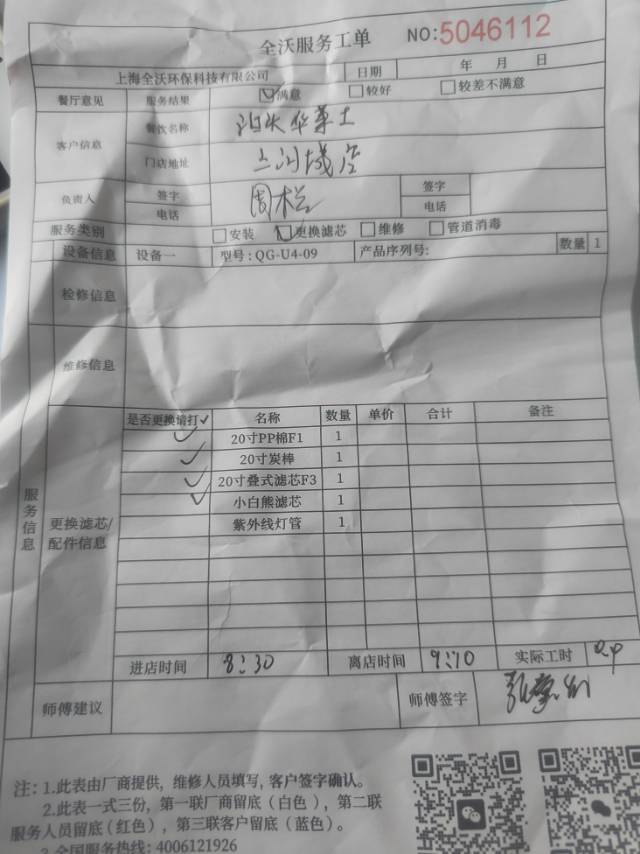 全沃服务工单 NO:5046112
上海全沃环保科技有限公司 日期 年 月 日
餐厅意见 服务结果 ☑满意 □较好 □较差不满意
客户信息 餐饮名称
门店地址
负责人 签字 签字
电话 电话
服务类别 □安装 ☑更换滤芯 □维修 □管道消毒
设备信息 设备一 型号:QG-U4-09 产品序列号: 数量 1
检修信息
维修信息
服务信息
更换滤芯/配件信息
是否更换请打✓ 名称 数量 单价 合计 备注
✓ 20寸PP棉F1 1
✓ 20寸炭棒 1
✓ 20寸叠式滤芯F3 1
✓ 小白熊滤芯 1
紫外线灯管 1
进店时间 8:30 离店时间 9:10 实际工时
师傅建议 师傅签字
注: 1.此表由厂商提供, 维修人员填写, 客户签字确认。
2.此表一式三份, 第一联厂商留底(白色), 第二联
服务人员留底(红色), 第三联客户留底(蓝色)。
3.全国服务热线: 4006121926